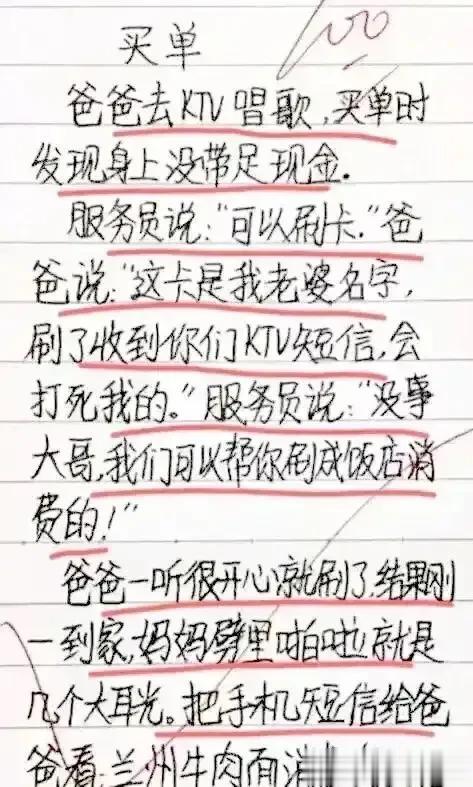 100
买单
爸爸去KTV唱歌,买单时
发现身上没带足现金.
服务员说:“可以刷卡.”爸
爸说:“这卡是我老婆名字,
刷了收到你们KTV短信,会
打死我的.”服务员说:“没事
大哥,我们可以帮你刷成饭店消
费的!”
爸爸一听很开心就刷了,结果刚
一到家,妈妈劈里啪啦就是
几个大耳光。把手机短信给爸
爸看:兰州牛肉面消